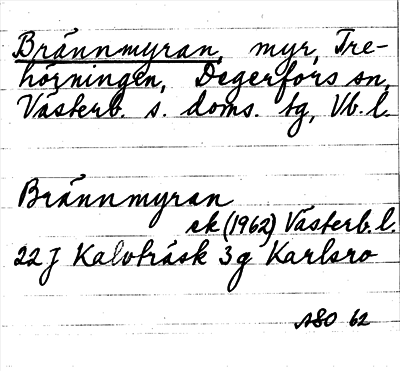 Brännmyran, myr, Tre-
hörningen, Degerfors sn,
Västerb. s. doms. tg, Vb. l.
Brännmyran
ek (1962) Västerb. l.
22 J Kalvträsk 3 g Karlsro
ASO 62